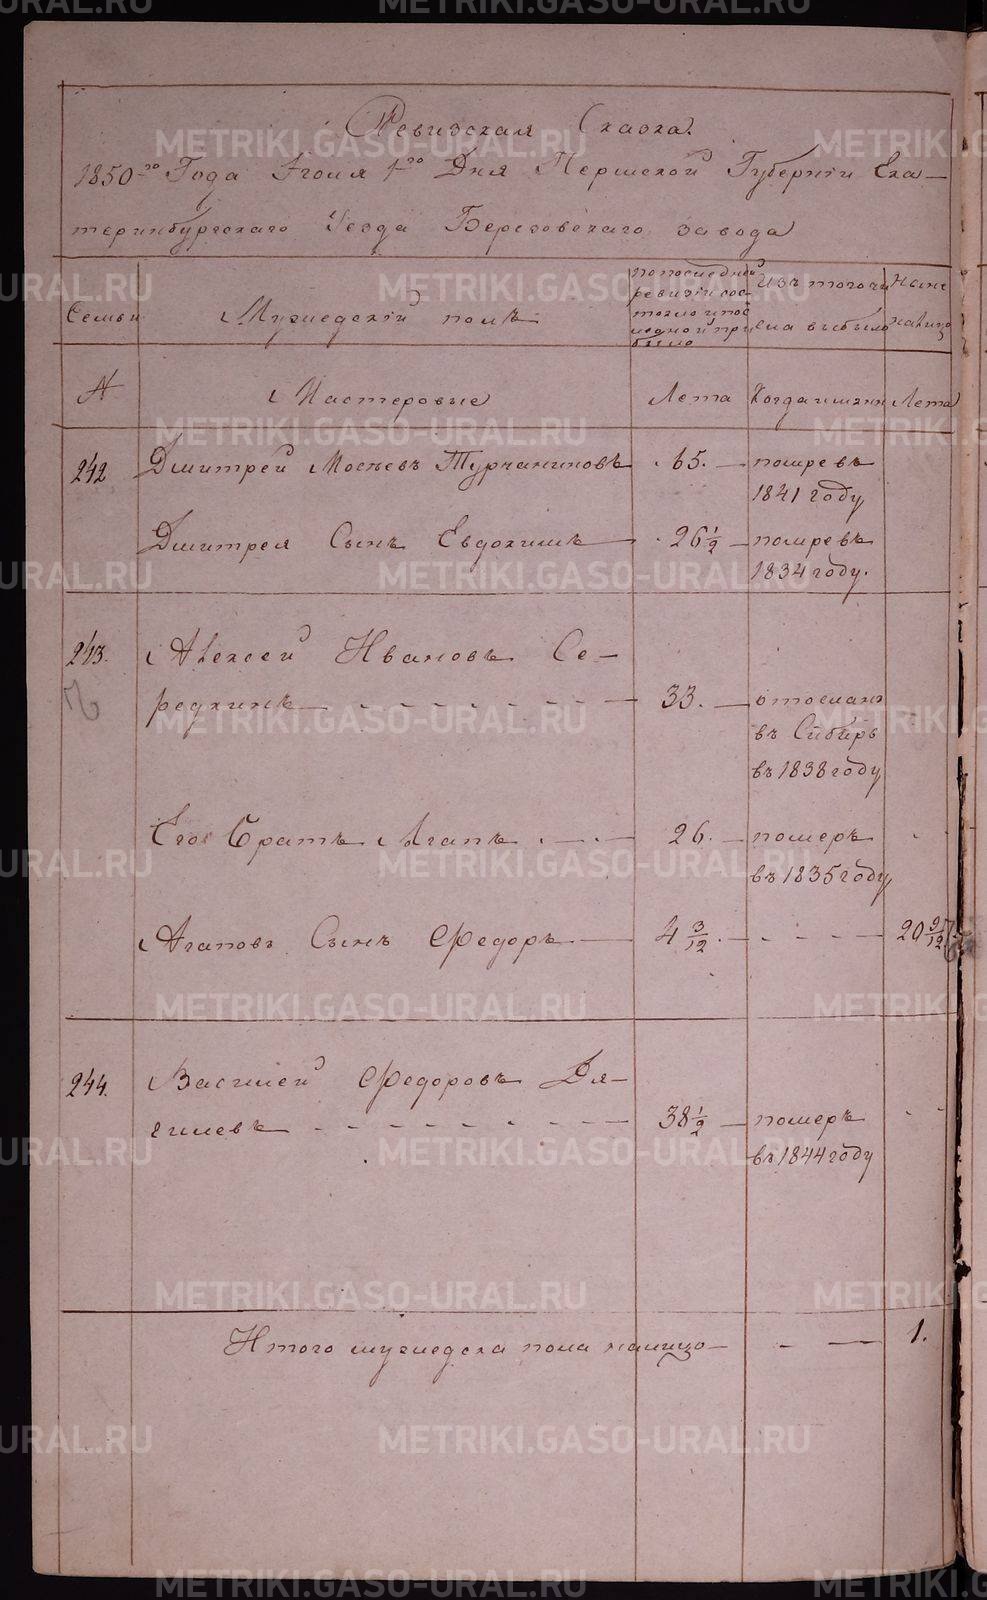 Ревизская Сказка.
1850-го Года Іюня 1-го Дня Пермской Губерніи Ека-
теринбургскаго Уезда Березовскаго завода
Семьи
Мужеский полъ
по последней
ревизіи сос-
тояло и пос
ле оной при
было
Изъ того чи
сла выбыло
Ныне
на лицо
№
Мастеровые
Лета
Когда именн
Лета
242.
Дмитрей Мосеевъ Турчаниновъ
65.
помре въ
1841 году
Дмитрея Сынъ Евдокимъ
26 1/2
помре въ
1834 году.
243.
Алексей Ивановъ Се-
редкинъ
33.
отосланъ
въ Сибирь
въ 1838 году
Его Братъ Агапъ
26.
померъ
въ 1835 году
Агаповъ Сынъ Федоръ
4 3/12.
20 9/12
244.
Василей Федоровъ Дя-
гилевъ
38 1/2
померъ
въ 1844 году
Итого мужеска пола налицо
1.
METRIKI.GASO-URAL.RU